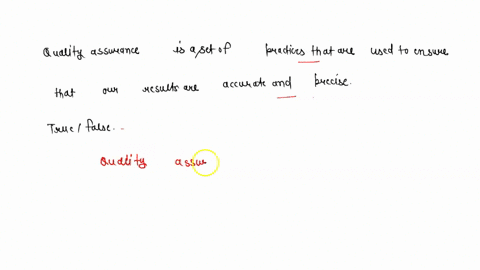 Quality assurance is a set of practices that are used to ensure
that our results are accurate and precise.
True / false..
Quality assur